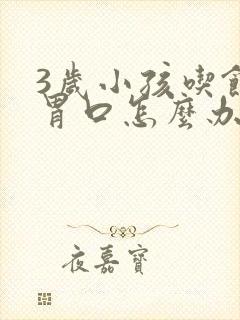 3歲小孩喫飯
胃口怎麼办
夜嘉寶